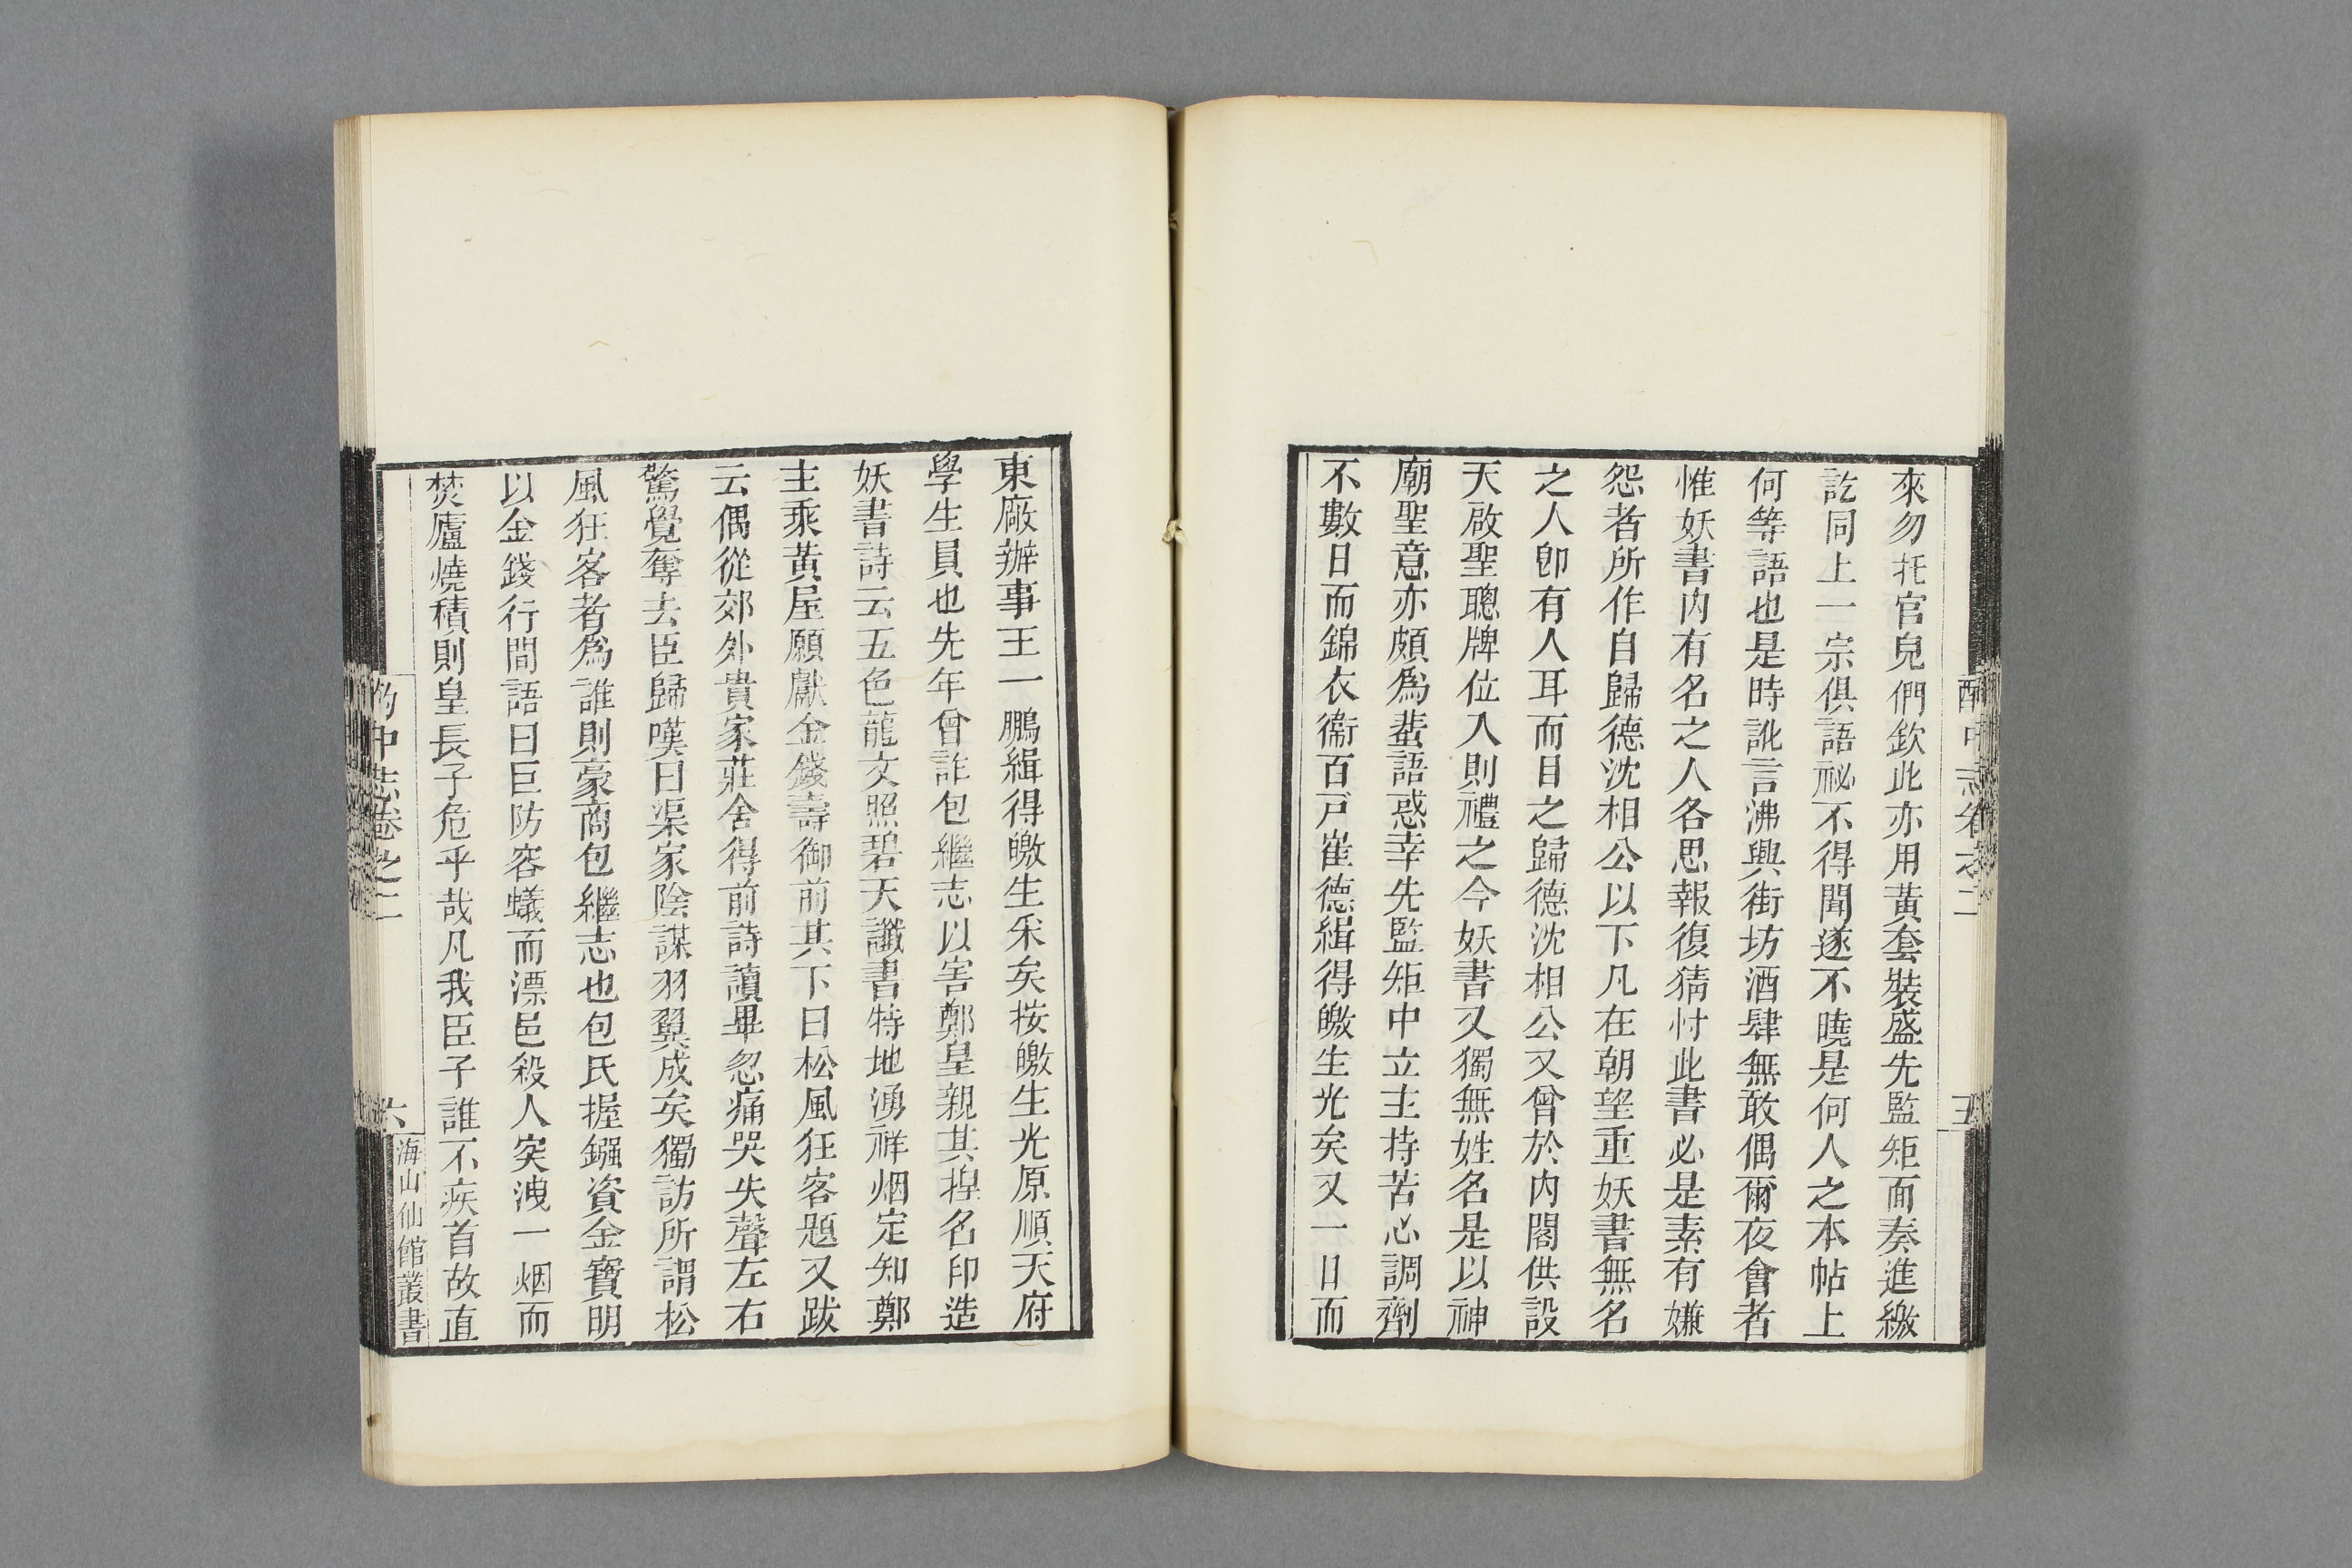 來勿托官兒們欽此亦用黃套裝盛先監矩面奏進繳
訖同上一宗俱語祕不得聞遂不曉是何人之本帖上
何等語也是時訛言沸興街坊酒肆無敢偶爾夜會者
惟妖書内有名之人各思報復猜忖此書必是素有嫌
怨者所作自歸德沈相公以下凡在朝望重妖書無名
之人卽有人耳而目之歸德沈相公又曾於内閣供設
天啟聖聰牌位入則禮之今妖書又獨無姓名是以神
廟聖意亦頗爲蜚語惑幸先監矩中立主持苦心調劑
不數日而錦衣衞百戸崔德緝得皦生光矣又一日而
酌中志卷之二
五
東廠辦事王一鵬緝得皦生采矣按皦生光原順天府
學生員也先年曾詐包繼志以害鄭皇親其揑名印造
妖書詩云五色龍文照碧天讖書特地湧祥烟定知鄭
主乘黃屋願獻金錢壽御前其下曰松風狂客題又跋
云偶從郊外貴家莊舍得前詩讀畢忽痛哭失聲左右
驚覺奪去臣歸嘆曰渠家陰謀羽翼成矣獨訪所謂松
風狂客者爲誰則豪商包繼志也包氏握鏹資金寶明
以金錢行間語曰巨防容蟻而漂邑殺人突洩一烟而
焚廬燒積則皇長子危乎哉凡我臣子誰不疾首故直
酌中志卷之二
六
海山仙館叢書